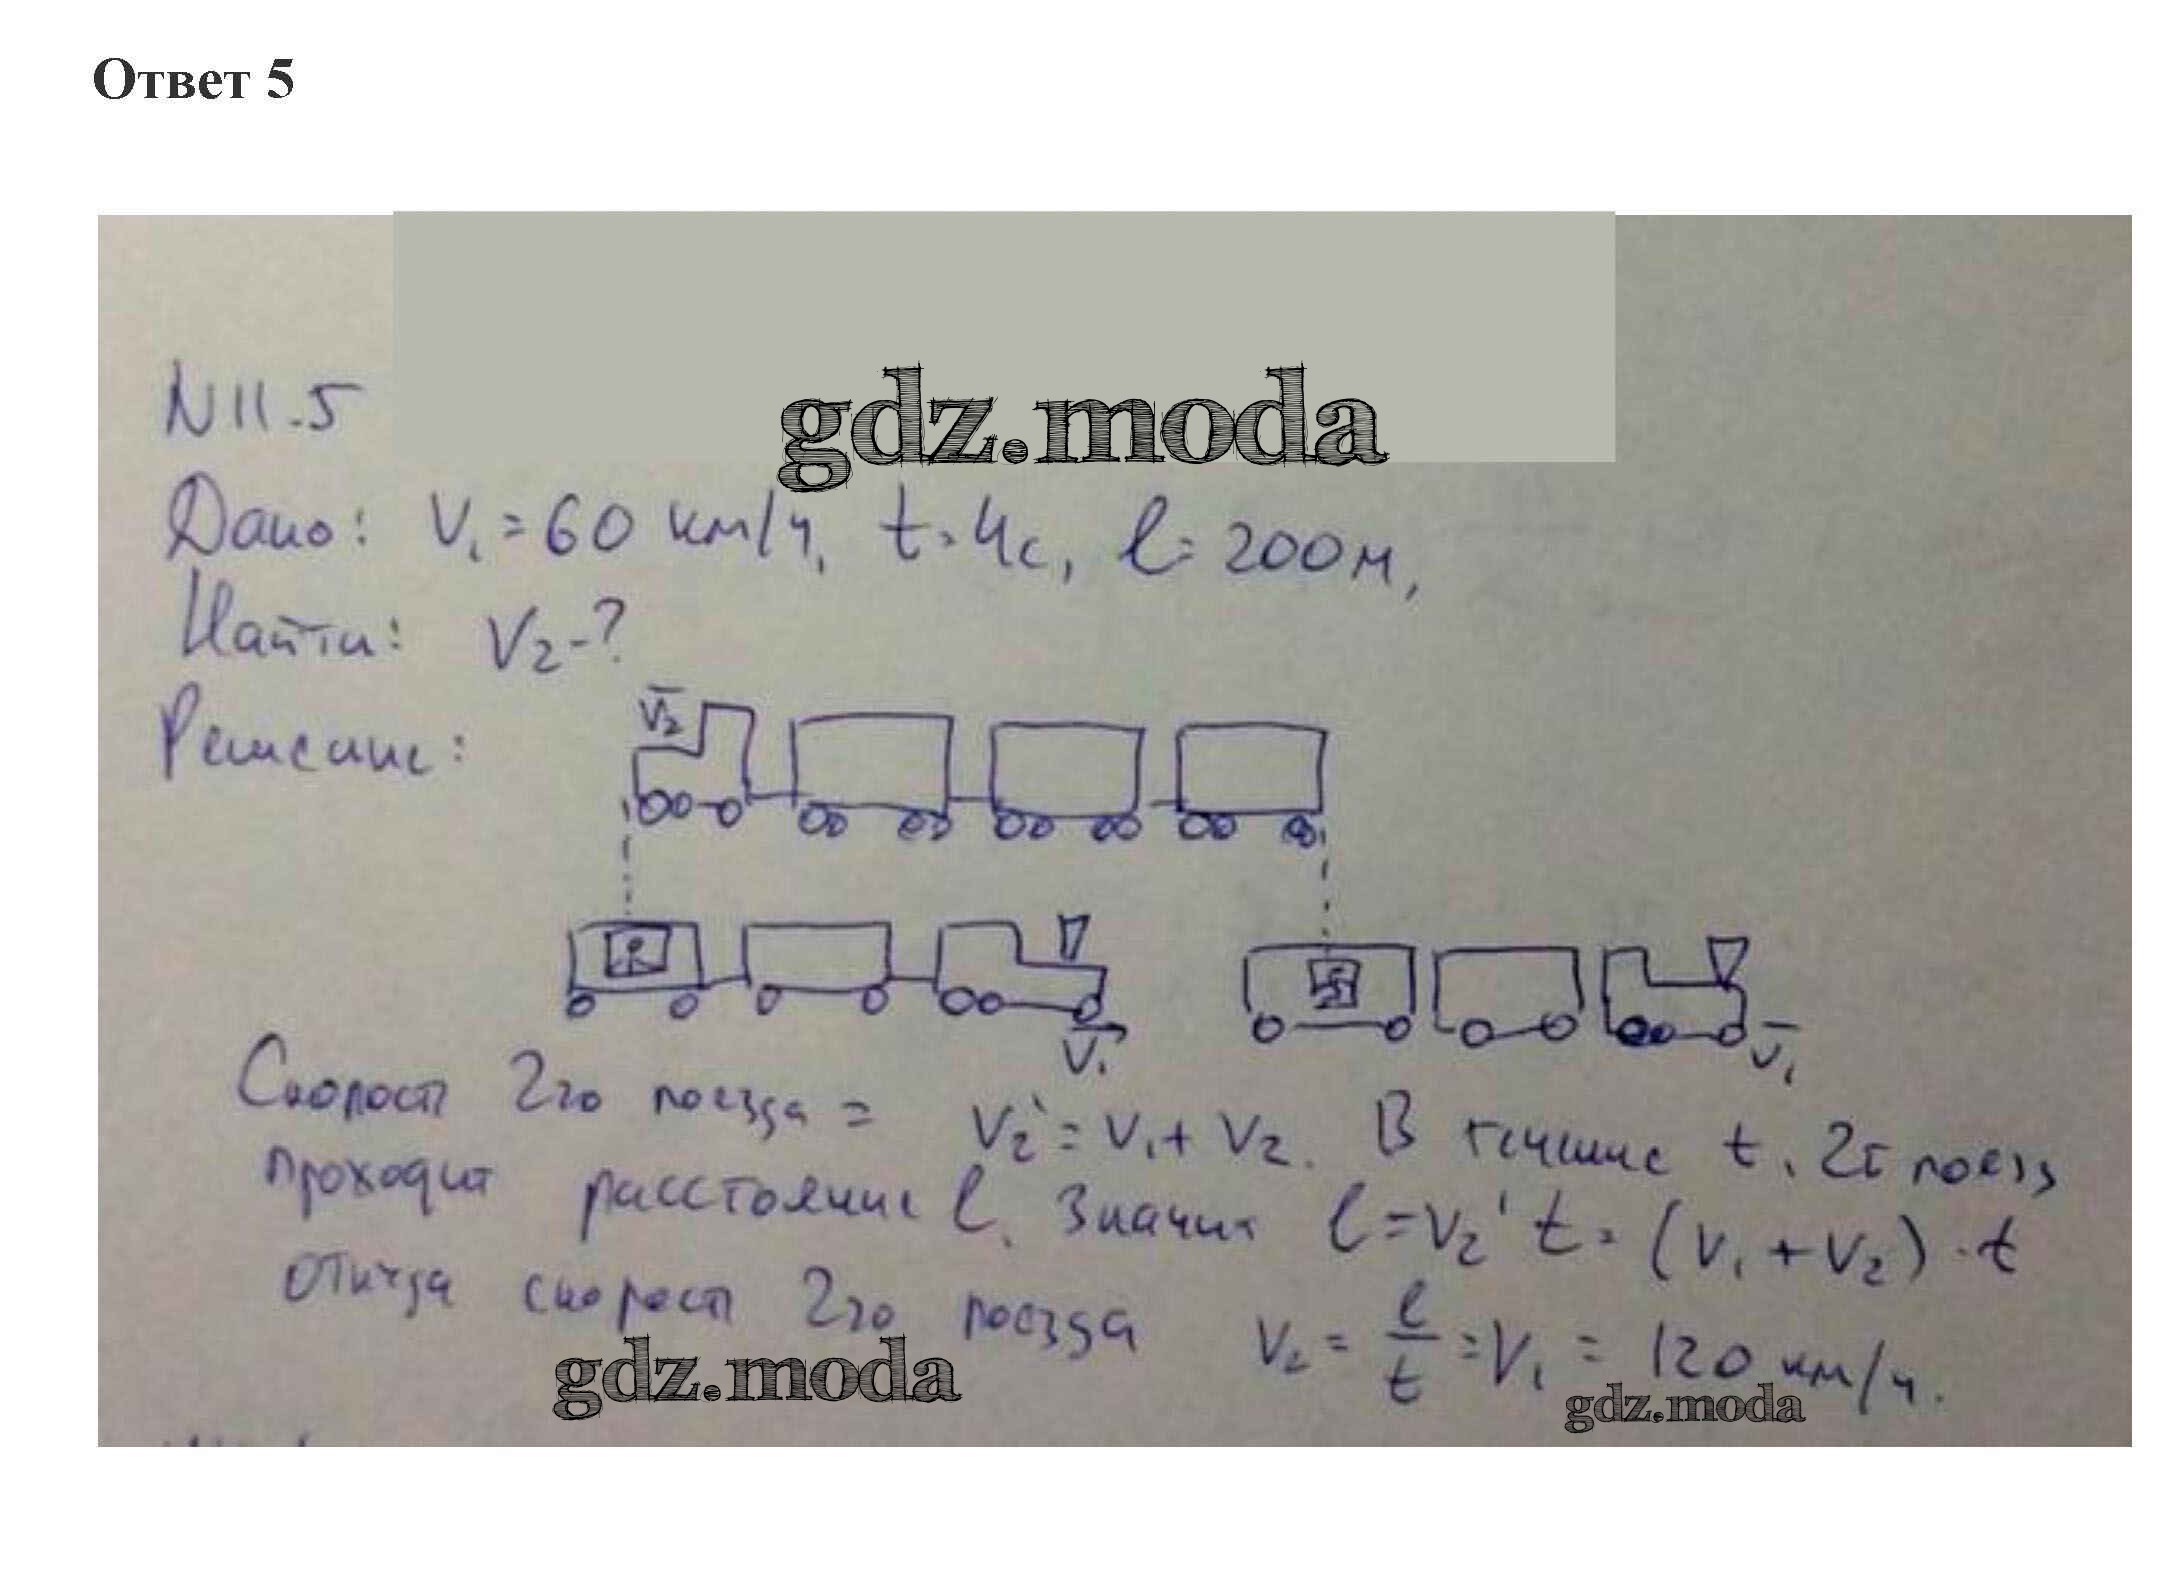 Ответ 5
gdz.moda
N 11.5
Дано: V₁ = 60 км/ч, t = 4с, l = 200м,
Найти: V₂ - ?
Решение:
V₂
V₁
V₁
Скорость 2го поезда = V₂' = V₁ + V₂. В течение t, 2й поезд
проходит расстояние l. Значит l = V₂' t = (V₁ + V₂) · t
откуда скорость 2го поезда V₂ = l/t = V₁ = 120 км/ч.
gdz.moda
gdz.moda